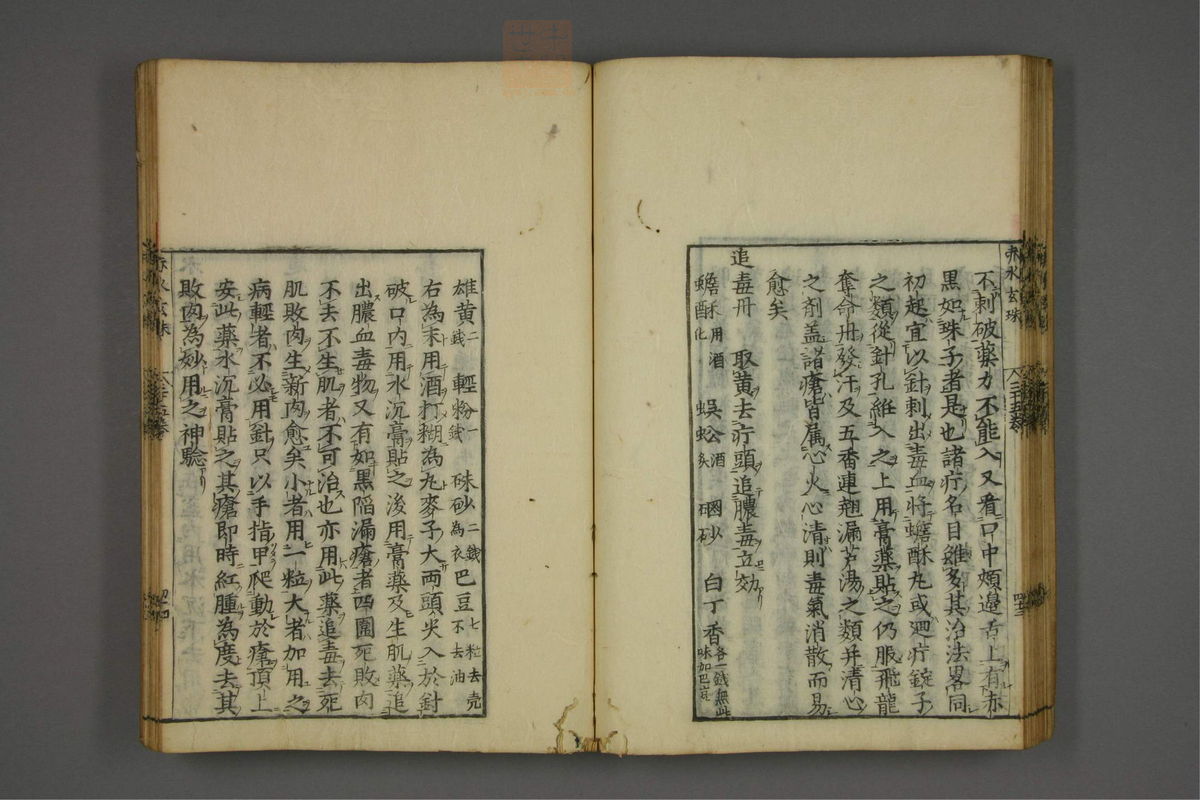 赤水玄珠
不刺破藥力不能入又看口中頰邊舌上有赤
黒如珠子者是也諸疔名目雖多其治法畧同
初起宜以針刺出毒血將蟾酥丸或廻疔錠子
之類從針孔維入之上用膏藥貼之仍服飛龍
奪命丹發汗及五香連翹漏芦湯之類并清心
之剤盖諸瘡皆属心火心清則毒氣消散而易
愈矣
追毒丹 取黄去疔頭追膿毒立効
蟾酥用酒化 蜈蚣酒炙 硇砂 白丁香各一錢無此味加巴豆
雄黄二錢 輕粉一錢 硃砂二錢為衣 巴豆七粒去壳不去油
右為末用酒打糊為丸麥子大両頭尖入於針
破口内用水沉膏貼之後用膏藥及生肌藥追
出膿血毒物又有如黒陷漏瘡者四圍死敗肉
不去不生肌者不可治也亦用此藥追毒去死
肌敗肉生新肉愈矣小者用一粒大者加用之
病輕者不必用針只以手指甲爬動於瘡頂上
安此藥水沉膏貼之其瘡即時紅腫為度去其
敗肉為妙用之神驗
赤水玄珠